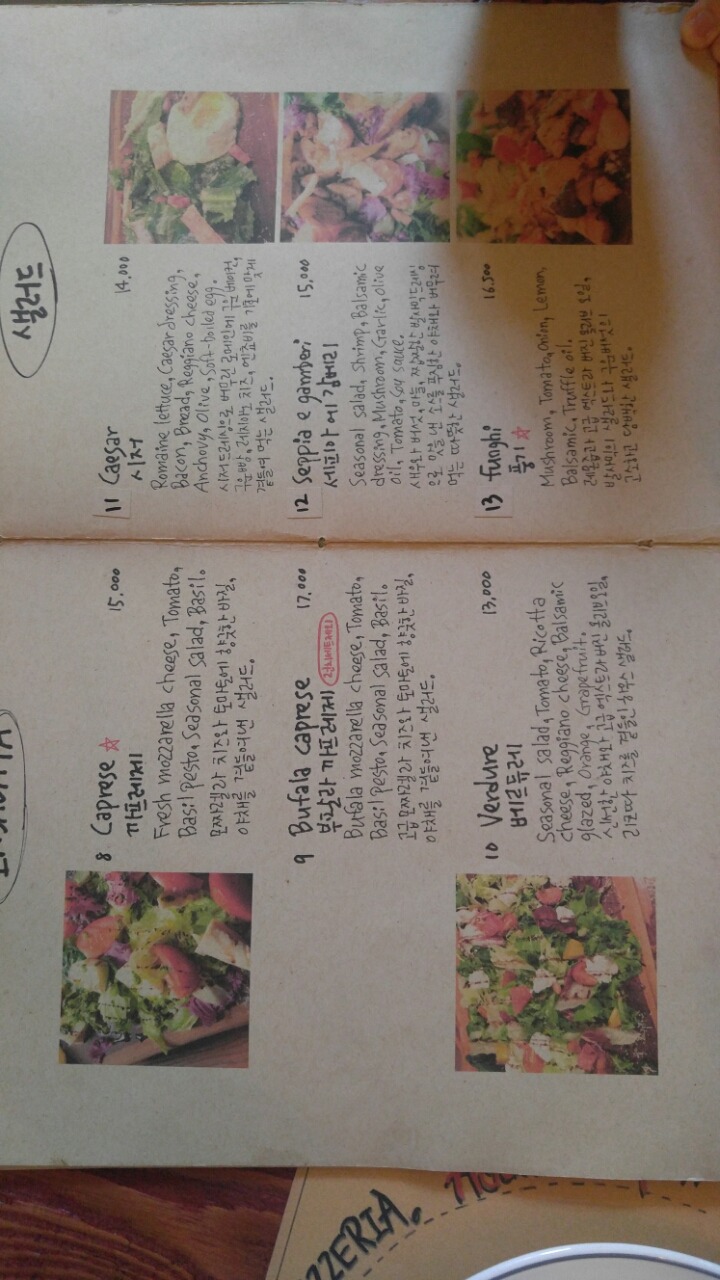 8 Caprese ☆ 15,000
까프레제
Fresh mozzarella cheese, Tomato,
Basil pesto, Seasonal salad, Basil.
모짜렐라 치즈와 토마토에 향긋한 바질,
야채를 곁들여낸 샐러드.
9 Bufala caprese 17,000
부팔라 까프레제
Bufala mozzarella cheese, Tomato,
Basil pesto, Seasonal salad, Basil.
고급 모짜렐라 치즈와 토마토에 향긋한 바질,
야채를 곁들여낸 샐러드.
10 Verdure 13,000
베르듀레
Seasonal salad, Tomato, Ricotta
cheese, Reggiano cheese, Balsamic
glazed, Orange, Grapefruit.
신선한 야채와 고급 엑스트라 버진 올리브오일,
리코따 치즈를 곁들인 하우스 샐러드.
샐러드
11 Caesar 14,000
시저
Romaine lettuce, Caesar dressing,
Bacon, Bread, Reggiano cheese,
Anchovy, Olive, Soft-boiled egg.
시저드레싱으로 버무린 로메인에 구운 베이컨,
구운빵, 레지아노 치즈, 엔쵸비를 기호에 맞게
곁들여 먹는 샐러드.
12 Seppia e gamberi 15,000
세피아 에 감베리
Seasonal salad, Shrimp, Balsamic
dressing, Mushroom, Garlic, Olive
oil, Tomato, Soy sauce.
새우와 버섯, 마늘,
으로 맛을 낸 소스를 야채와 버무려
먹는 따뜻한 샐러드.
13 funghi 16,500
풍기 ☆
Mushroom, Tomato, Onion, Lemon,
Balsamic, Truffle oil.
레몬즙과 고급 엑스트라 버진 올리브 오일,
발사믹이 샐러드와 구운버섯의
고소하고 담백한 샐러드.
ZZERIA.